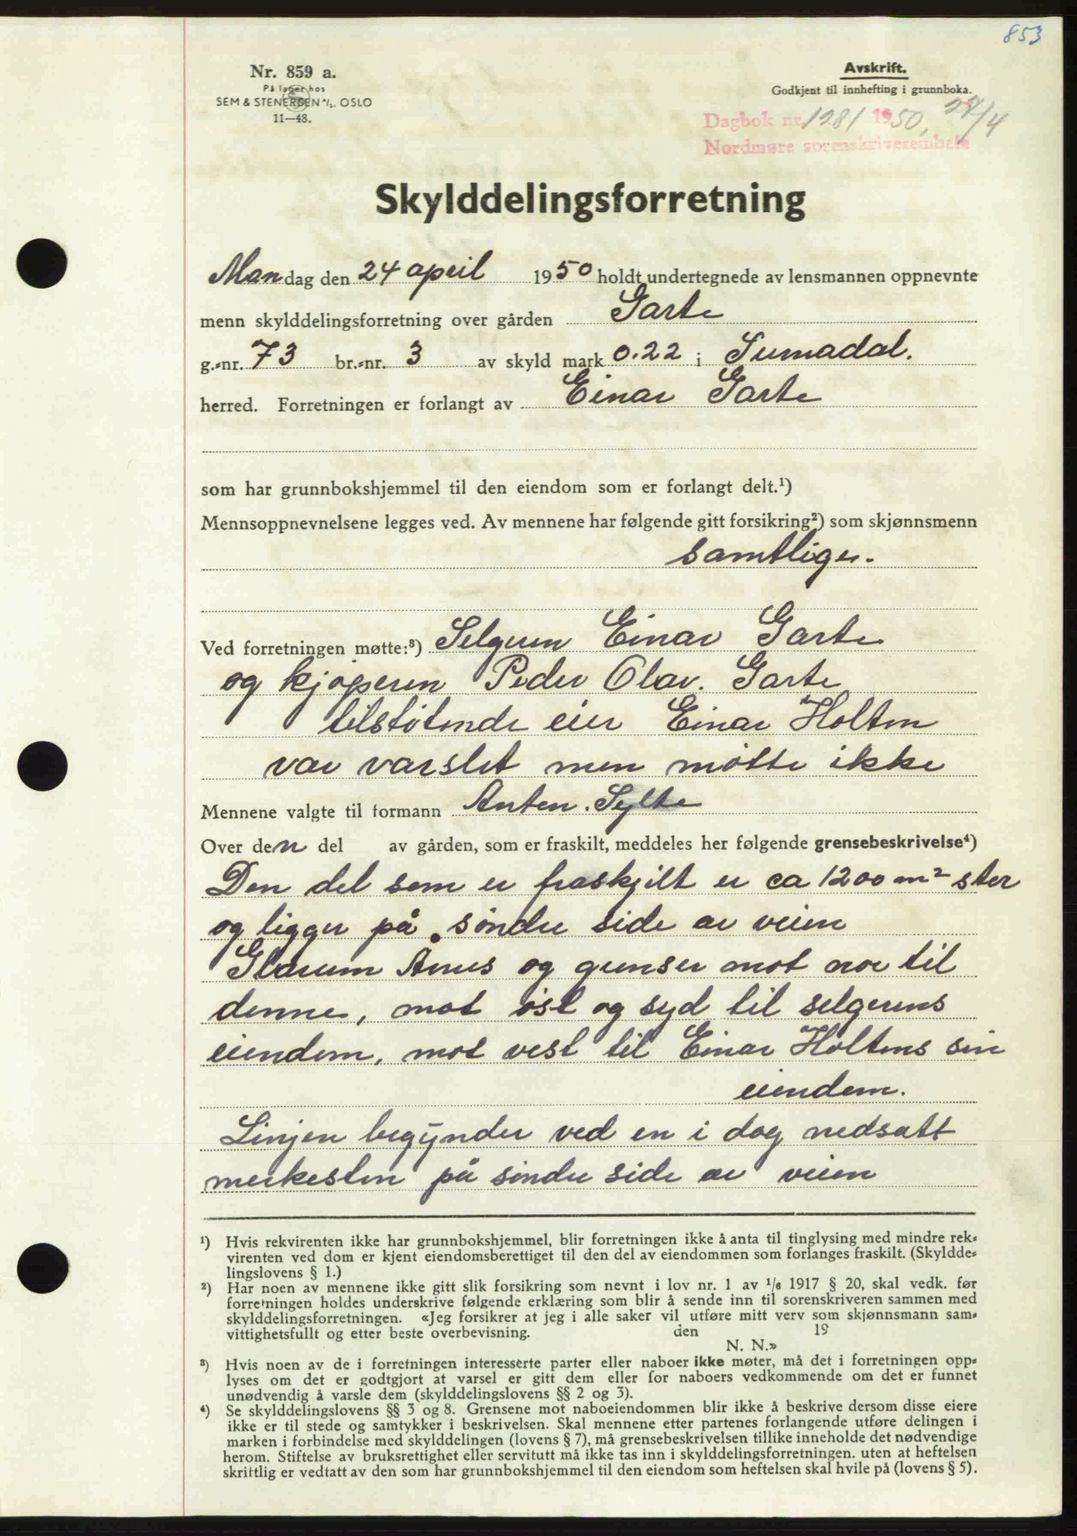 853
Nr. 859 a.
På lager hos
SEM & STENERSEN A/S, OSLO
11—48.
Avskrift.
Godkjent til innhefting i grunnboka.
Dagbok nr. 1281 1950, 27/4
Nordmøre sorenskriverembete
Skylddelingsforretning
Mandag den 24 april 1950 holdt undertegnede av lensmannen oppnevnte
menn skylddelingsforretning over gården Garte
g.-nr. 73 br.-nr. 3 av skyld mark 0.22 i Surnadal.
herred. Forretningen er forlangt av Einar Garte
som har grunnbokshjemmel til den eiendom som er forlangt delt.¹)
Mennsoppnevnelsene legges ved. Av mennene har følgende gitt forsikring²) som skjønnsmenn
samtlige.
Ved forretningen møtte:³) Selgeren Einar Garte
og kjøperen Peder Olav. Garte
tilstøtende eier Einar Holten
var varslet men møtte ikke
Mennene valgte til formann Anten. Sylte
Over den del av gården, som er fraskilt, meddeles her følgende grensebeskrivelse⁴)
Den del som er fraskjilt er ca 1200 m² stor
og ligger på søndre side av veien
Glærum Ånes og grenser mot nor til
denne, mot øst og syd til selgerens
eiendom, mot vest til Einar Holtens sin
eiendom.
Linjen begynder ved en i dag nedsatt
merkesten på søndre side av veien
¹) Hvis rekvirenten ikke har grunnbokshjemmel, blir forretningen ikke å anta til tinglysing med mindre rek-
virenten ved dom er kjent eiendomsberettiget til den del av eiendommen som forlanges fraskilt. (Skyldde-
lingslovens § 1.)
²) Har noen av mennene ikke gitt slik forsikring som nevnt i lov nr. 1 av 1/6 1917 § 20, skal vedk. før
forretningen holdes underskrive følgende erklæring som blir å sende inn til sorenskriveren sammen med
skylddelingsforretningen. «Jeg forsikrer at jeg i alle saker vil utføre mitt verv som skjønnsmann sam-
vittighetsfullt og etter beste overbevisning. den 19
N. N.»
³) Hvis noen av de i forretningen interesserte parter eller naboer ikke møter, må det i forretningen opp-
lyses om det er godtgjort at varsel er gitt dem eller for naboers vedkommende om det er funnet
unødvendig å varsle dem (skylddelingslovens §§ 2 og 3).
⁴) Se skylddelingslovens §§ 3 og 8. Grensene mot naboeiendommen blir ikke å beskrive dersom disse eiere
ikke er til stede og samtykker i beskrivelsen. Skal mennene etter partenes forlangende utføre delingen i
marken i forbindelse med skylddelingen (lovens § 7), må grensebeskrivelsen tillike inneholde det nødvendige
herom. Stiftelse av bruksrettighet eller servitutt må ikke tas inn i skylddelingsforretningen. uten at heftelsen
skrittlig er vedtatt av den som har grunnbokshjemmel til den eiendom som heftelsen skal hvile på (lovens § 5).